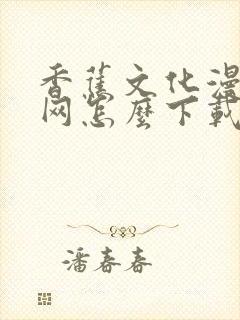 香蕉文化漫
网怎麼下載
潘春春